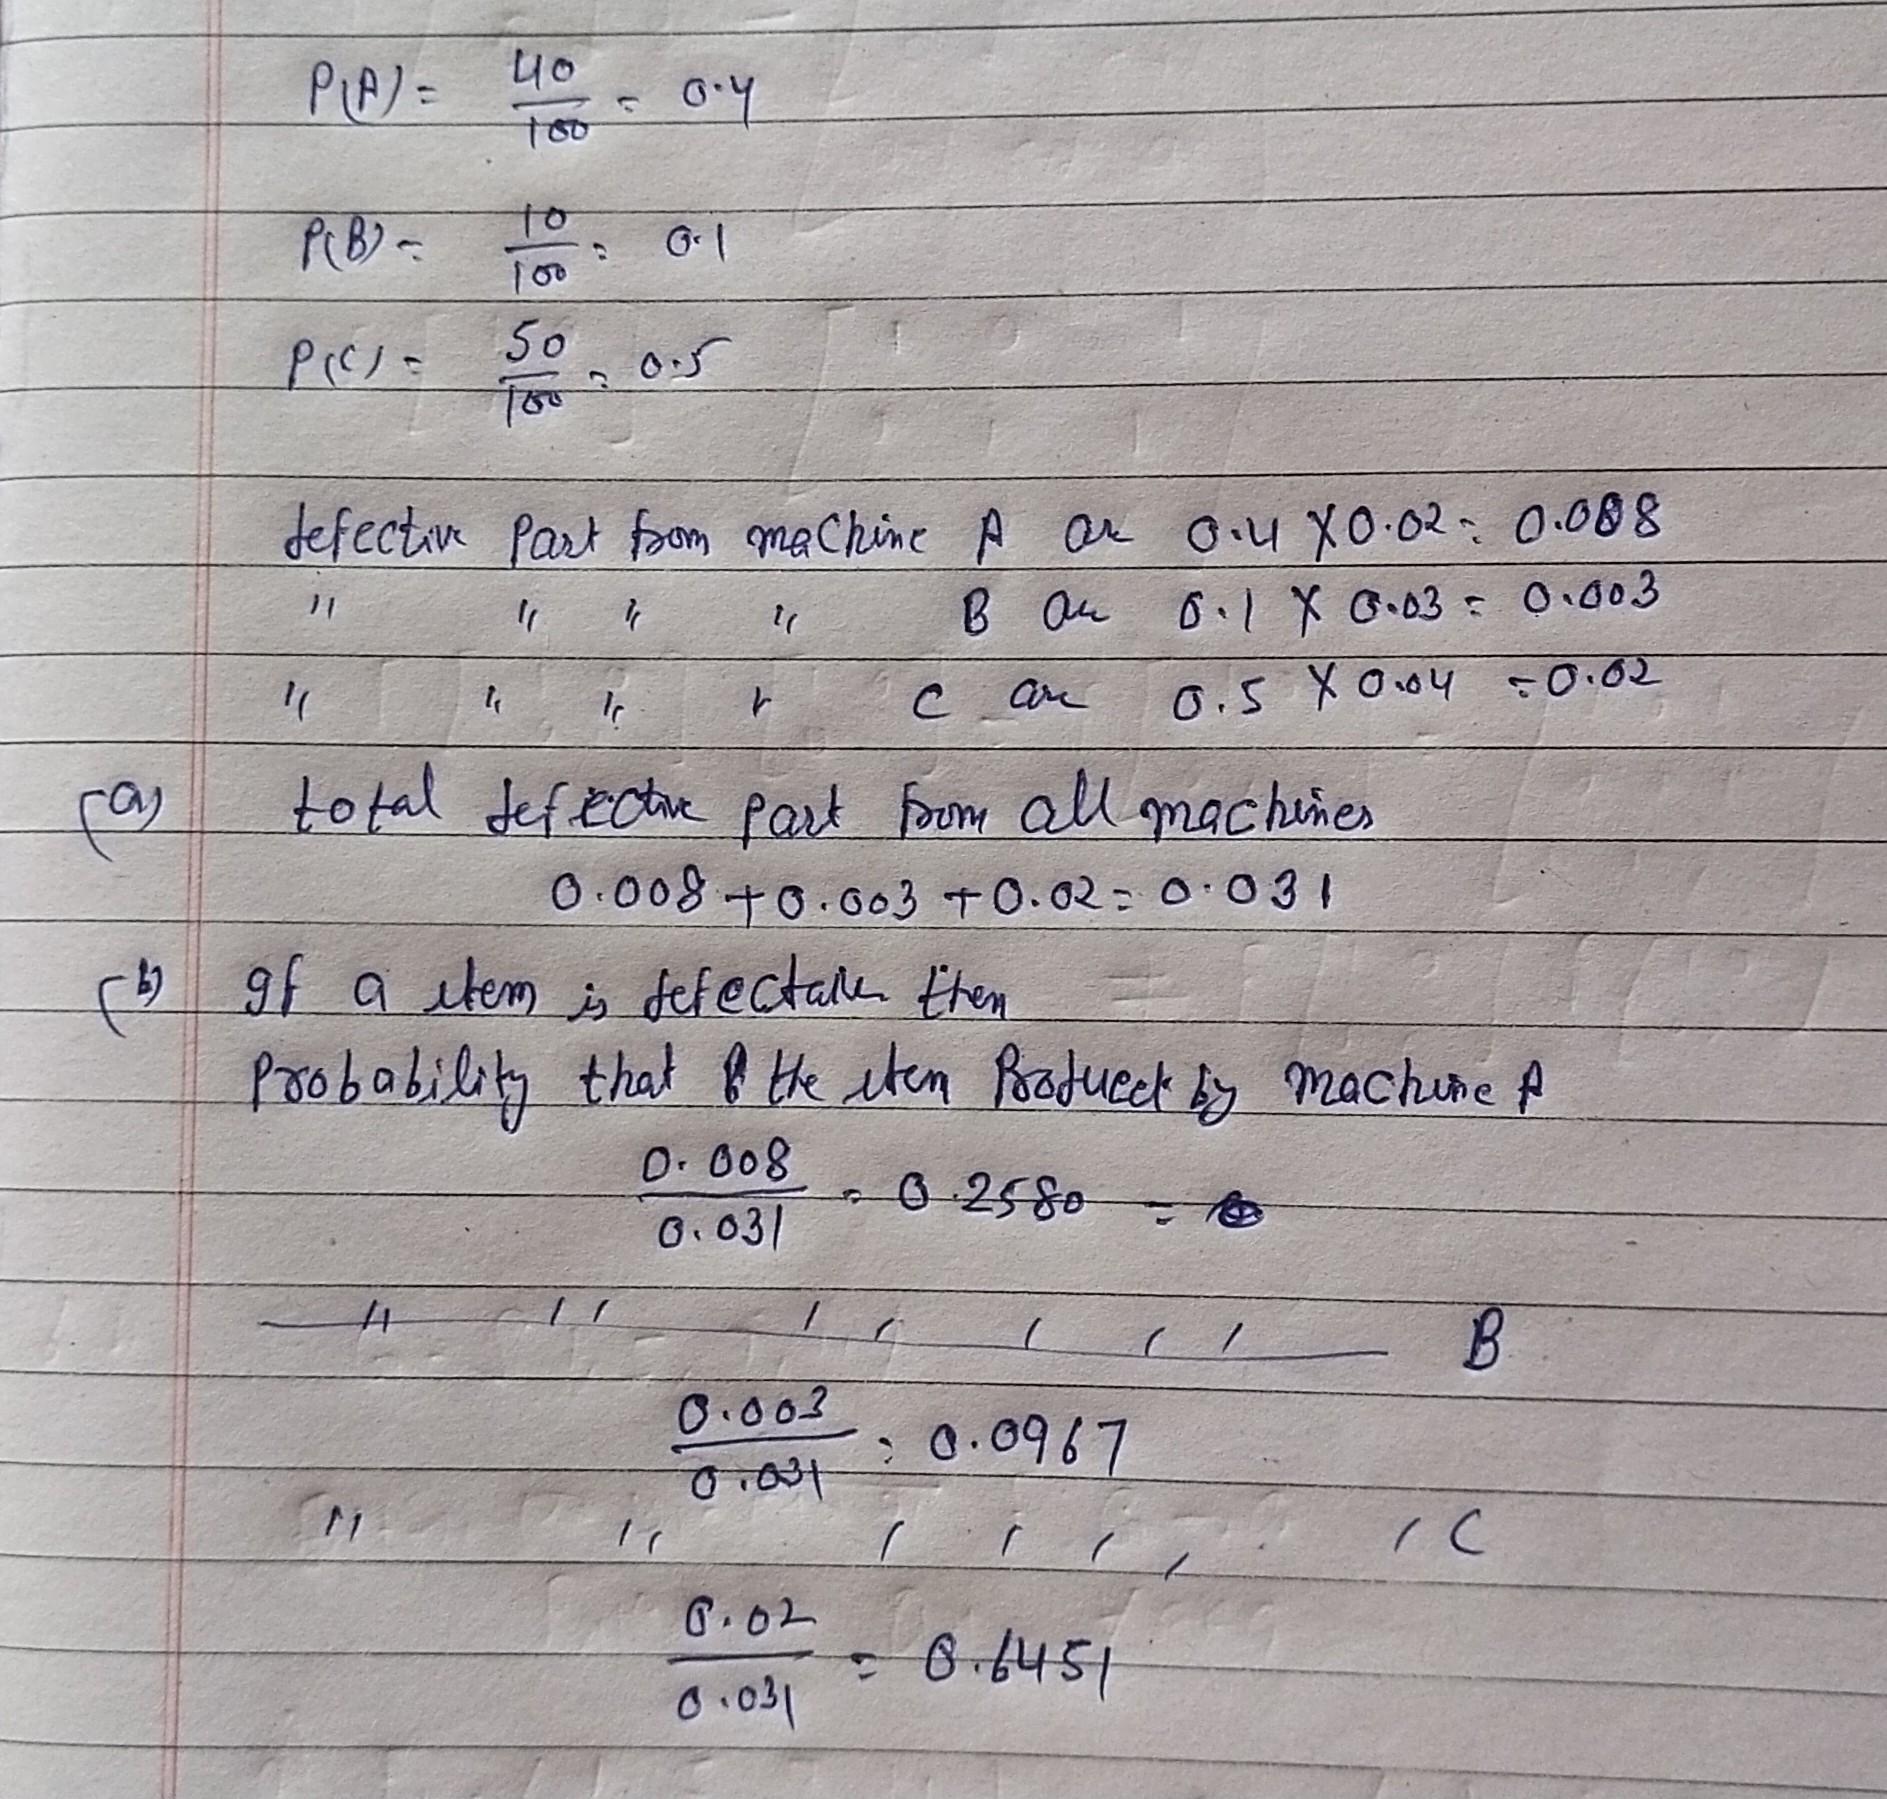 P(A) = 40/100 = 0.4
P(B) = 10/100 = 0.1
P(C) = 50/100 = 0.5
defective Part from machine A are 0.4 X 0.02 = 0.008
" " " " B are 0.1 X 0.03 = 0.003
" " " " C are 0.5 X 0.04 = 0.02
(a) total defective part from all machines
0.008 + 0.003 + 0.02 = 0.031
(b) If a item is then
Probability that the item Produced by machine A
0.008/0.031 = 0.2580 =
" " " " " " " B
0.003/0.031 = 0.0967
" " " " " " " C
0.02/0.031 = 0.6451